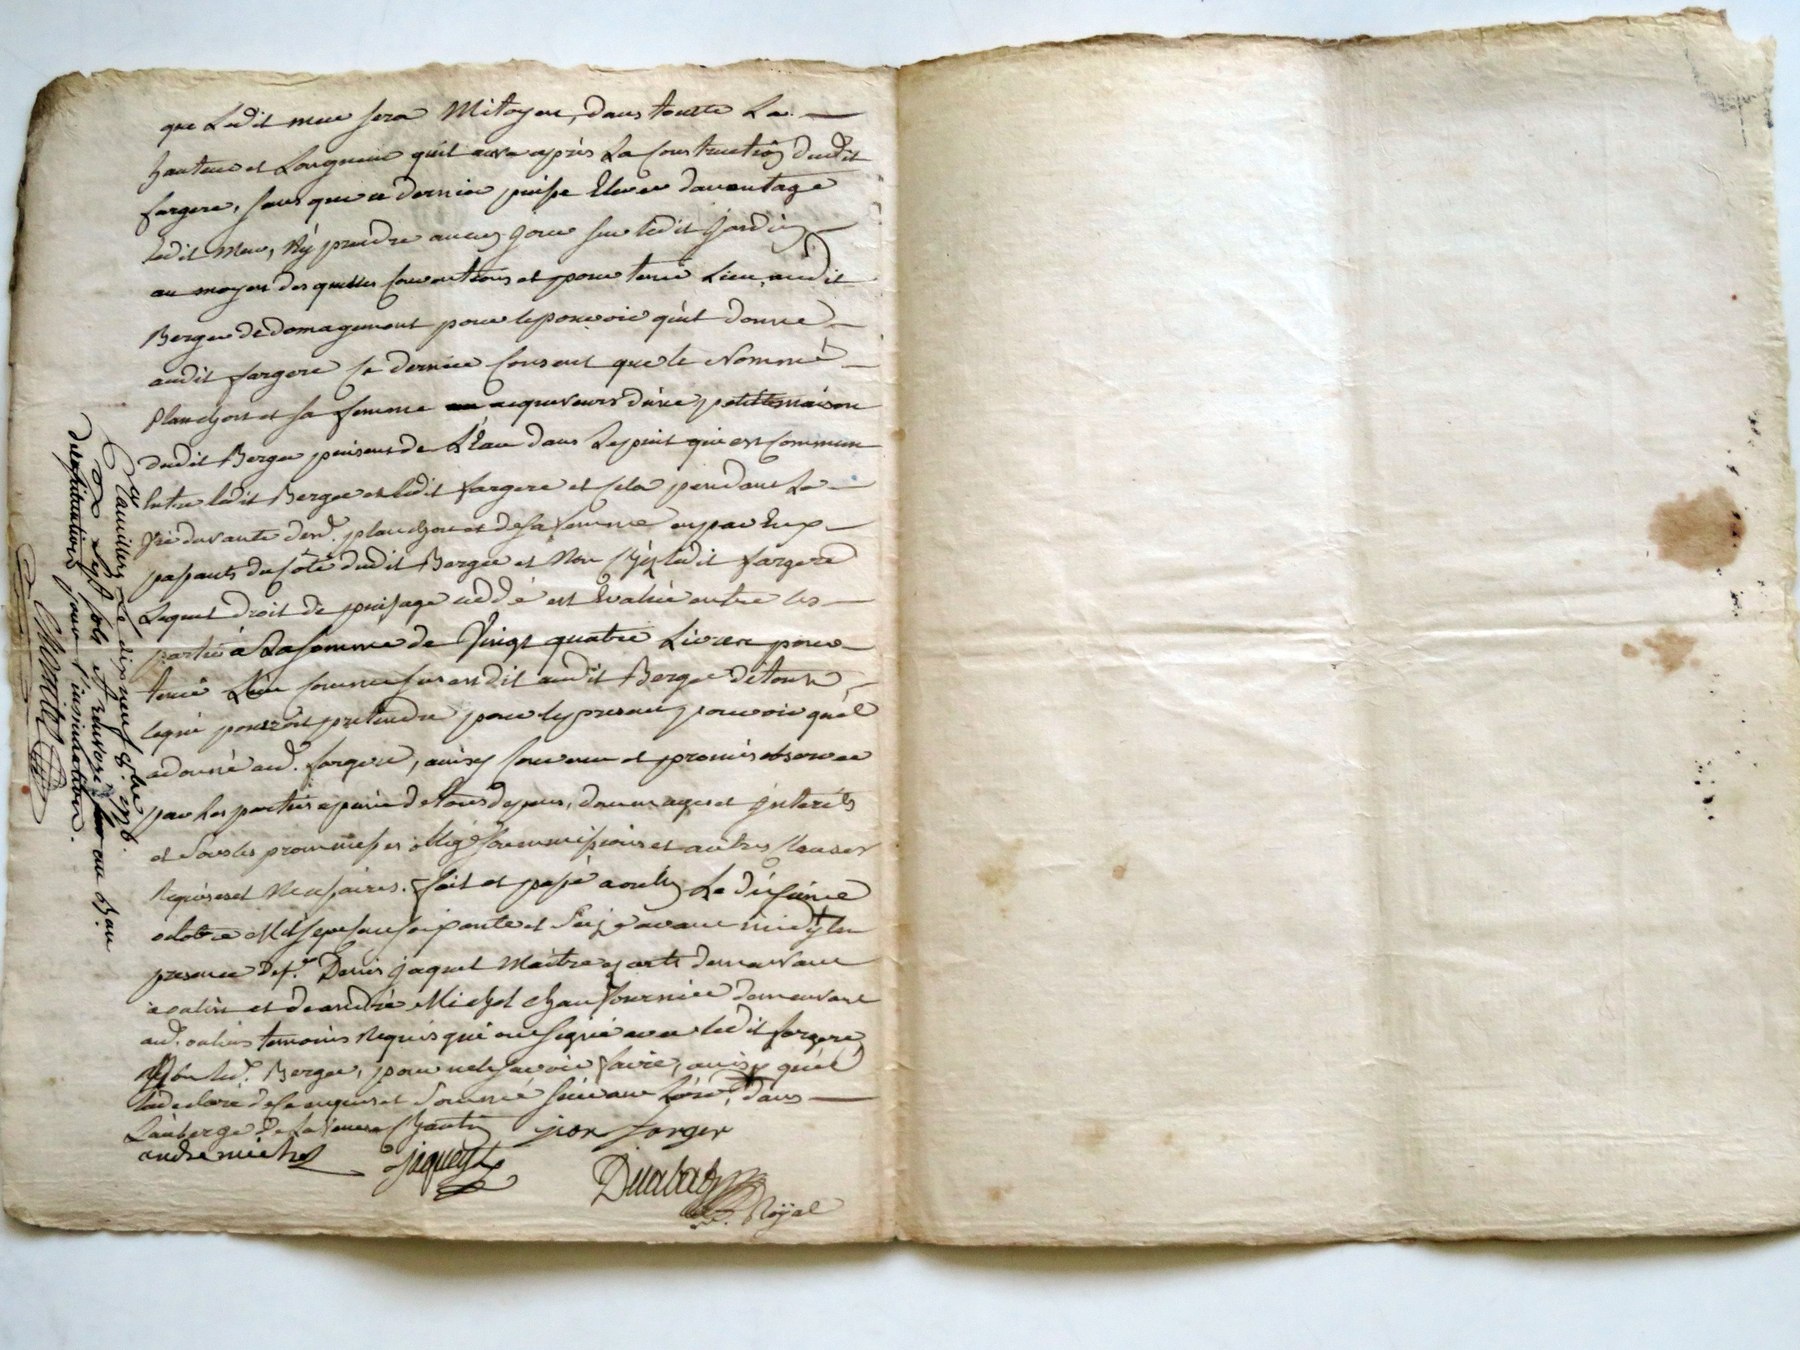 que Ledit mur sera Mitoyen, dans toutte La
hauteur et Longueur quil aura après La Construction dudit
fargere, sans que ce dernier puisse Elever davantage
ledit Mur, Ny prendre aucun Jour sur ledit Jardin
au moyen des quelles Conventions et pour tenir Lieu, audit
Berger de domagement pour le pouvoir quil donne
audit fargere Ce dernier Consent que le Nommé
planchon et sa femme acquereurs d'une petitte maison
dudit Berger puisent de L'Eau dans Le puit qui est Commun
Entre ledit Berger et ledit fargere et Cela pendant La
Vie durante dud. planchon et de sa femme en par Eux
passants du Coté dudit Berger et Non Chez ledit fargere
Lequel droit de puisage ceddé est Evalué entre les
partie à La somme de Vingt quatre Livres pour
tenir Lieu Comme sus est dit audit Berger de tout
ce qui pourroit pretendre pour le present pouvoir quil
a donné aud. fargere, ainsy Convenu et promis observer
par Les parties a peine de tous depens, dommages et Interéts
et Sous les promesses obligé soummissions et autres Clauses
Requises et Necessaires. fait et passé a oulins Le
octobre Mil sept Cent soixante et Seize avant midy En
presence de sr. Denis jaquet Maitre demeurant
a oulins et de andré Michel chaufournier demeurant
aud. oulins temoins Requis qui ont signé avec ledit fargere
Non led. Berger, pour ne le savoir faire, ainsy quil
La declaré de ce enquis et Sommé suivant Lord., dans
L'auberge de La Veuve
jion forger
andre michel
jaquet
Duabat
Royal
Vauillers Le dix neuf 8bre 1776.
R. sept sols et renvoié au Bau
de la situation pour l'insinuation.